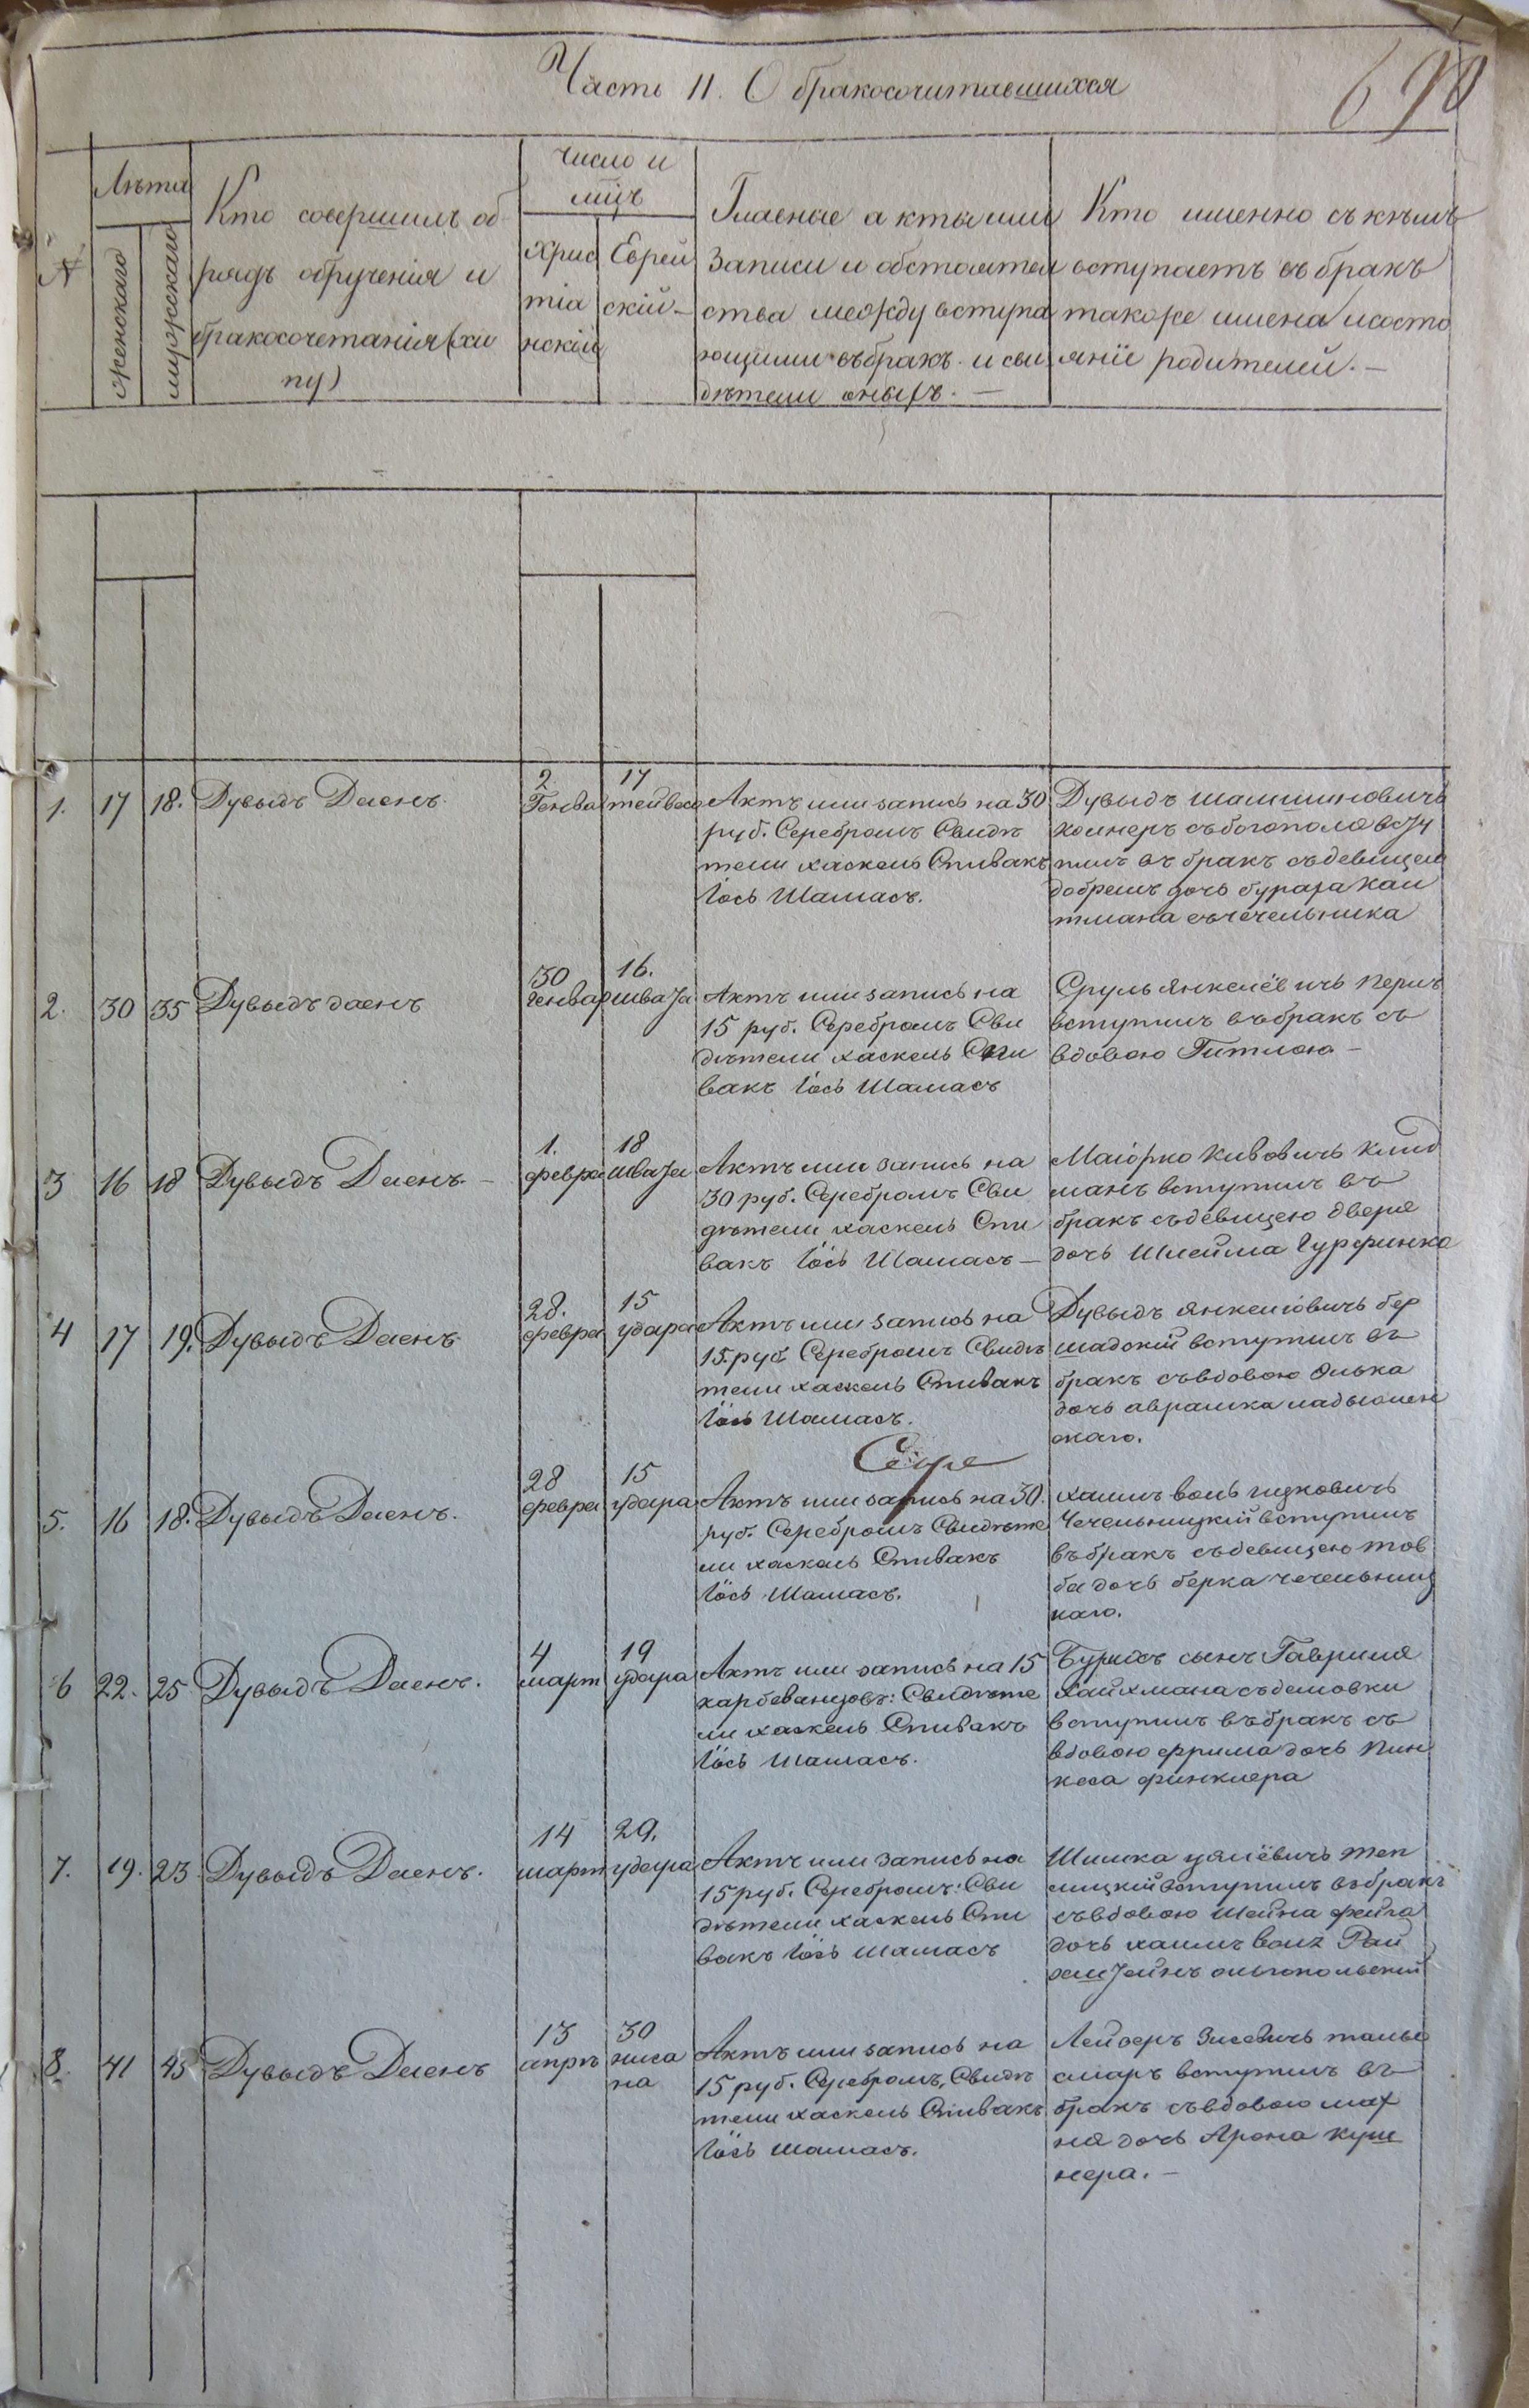 Часть II. О бракосочитавшихся
690
№
Лѣта
женскаго
мужскаго
Кто совершилъ об
рядъ обрученія и
бракосочетанія (хи
пу)
число и
мцъ
Хрис
тіа
нскій
Еврей
скій
Главные акты или
записи и обстоятел
ства между вступа
ющими въ бракъ и сви
дѣтели оныхъ. —
Кто именно съ кѣмъ
вступаетъ въ бракъ
также имена и состо
яніе родителей. —
1.
17
18.
Дувыдъ Даенъ.
2
Генва
17
тейвеса
Актъ или запись на 30
руб. Серебромъ Свидѣ
тели хаскель Спивакъ
Іось Шамасъ.
Дувыдъ
съ богополя всту
пилъ въ бракъ съ девицею
добрешъ дочь бураха Кац
тмана съ чечельника
2.
30
35
Дувыдъ даенъ
30
генвар
16.
швата
Актъ или запись на
15 руб. Серебромъ Сви
дѣтели хаскель Спи
вакъ Іось Шамасъ
Сруль Янкелёвичъ перлъ
вступилъ въ бракъ съ
вдовою Гитлою —
3
16
18
Дувыдъ Даенъ. —
1.
февра
18
швата
Актъ или запись на
30 руб. Серебромъ Сви
дѣтели хаскель Спи
вакъ Іось Шамасъ —
Маіорко Кивовичъ Клид
манъ вступилъ въ
бракъ съ девицею двере
дочь Шлейма Гурфинка
4
17
19.
Дувыдъ Даенъ
28.
февра
15
удара
Актъ или запись на
15. руб Серебромъ Свидѣ
тели хаскель Спивакъ
Іось Шамасъ.
Дувыдъ Янкеліовичъ бер
шадскій вступилъ въ
бракъ съ вдовою Элька
дочь аврамка
скаго.
5.
16
18.
Дувыдъ Даенъ.
28
февра
15
удара
Актъ или запись на 30.
руб. Серебромъ Свидѣте
ли хаскель Спивакъ
Іось Шамасъ.
хаимъ воль
Чечельницкій вступилъ
въ бракъ съ девицею тов
ба дочь берка чечельниц
каго.
6
22.
25
Дувыдъ Даенъ.
4
март
19
удара
Актъ или запись на 15
карбеванцовъ: Свидѣте
ли хаскель Спивакъ
Іось Шамасъ.
Бурихъ сынъ Гавриля
Хайхмана съ демовки
вступилъ въ бракъ съ
вдовою фрима дочь Пин
кеса финклера
7.
19.
23.
Дувыдъ Даенъ.
14
март
29.
удара
Актъ или запись на
15 руб. Серебромъ: Сви
дѣтели хаскель Спи
вакъ Іось Шамасъ
Шлика теп
лицкій вступилъ въ бракъ
съ вдовою Шейна фейга
дочь хаимъ
ольгопольскій
8.
41
45
Дувыдъ Даенъ
13
апрѣ
30
ниса
на
Актъ или запись на
15 руб. Серебромъ, Свидѣ
тели хаскель Спивакъ
Іось Шамасъ.
Лейзеръ Зисевичъ
вступилъ въ
бракъ съ вдовою мах
ня дочь Арона куш
нера. —